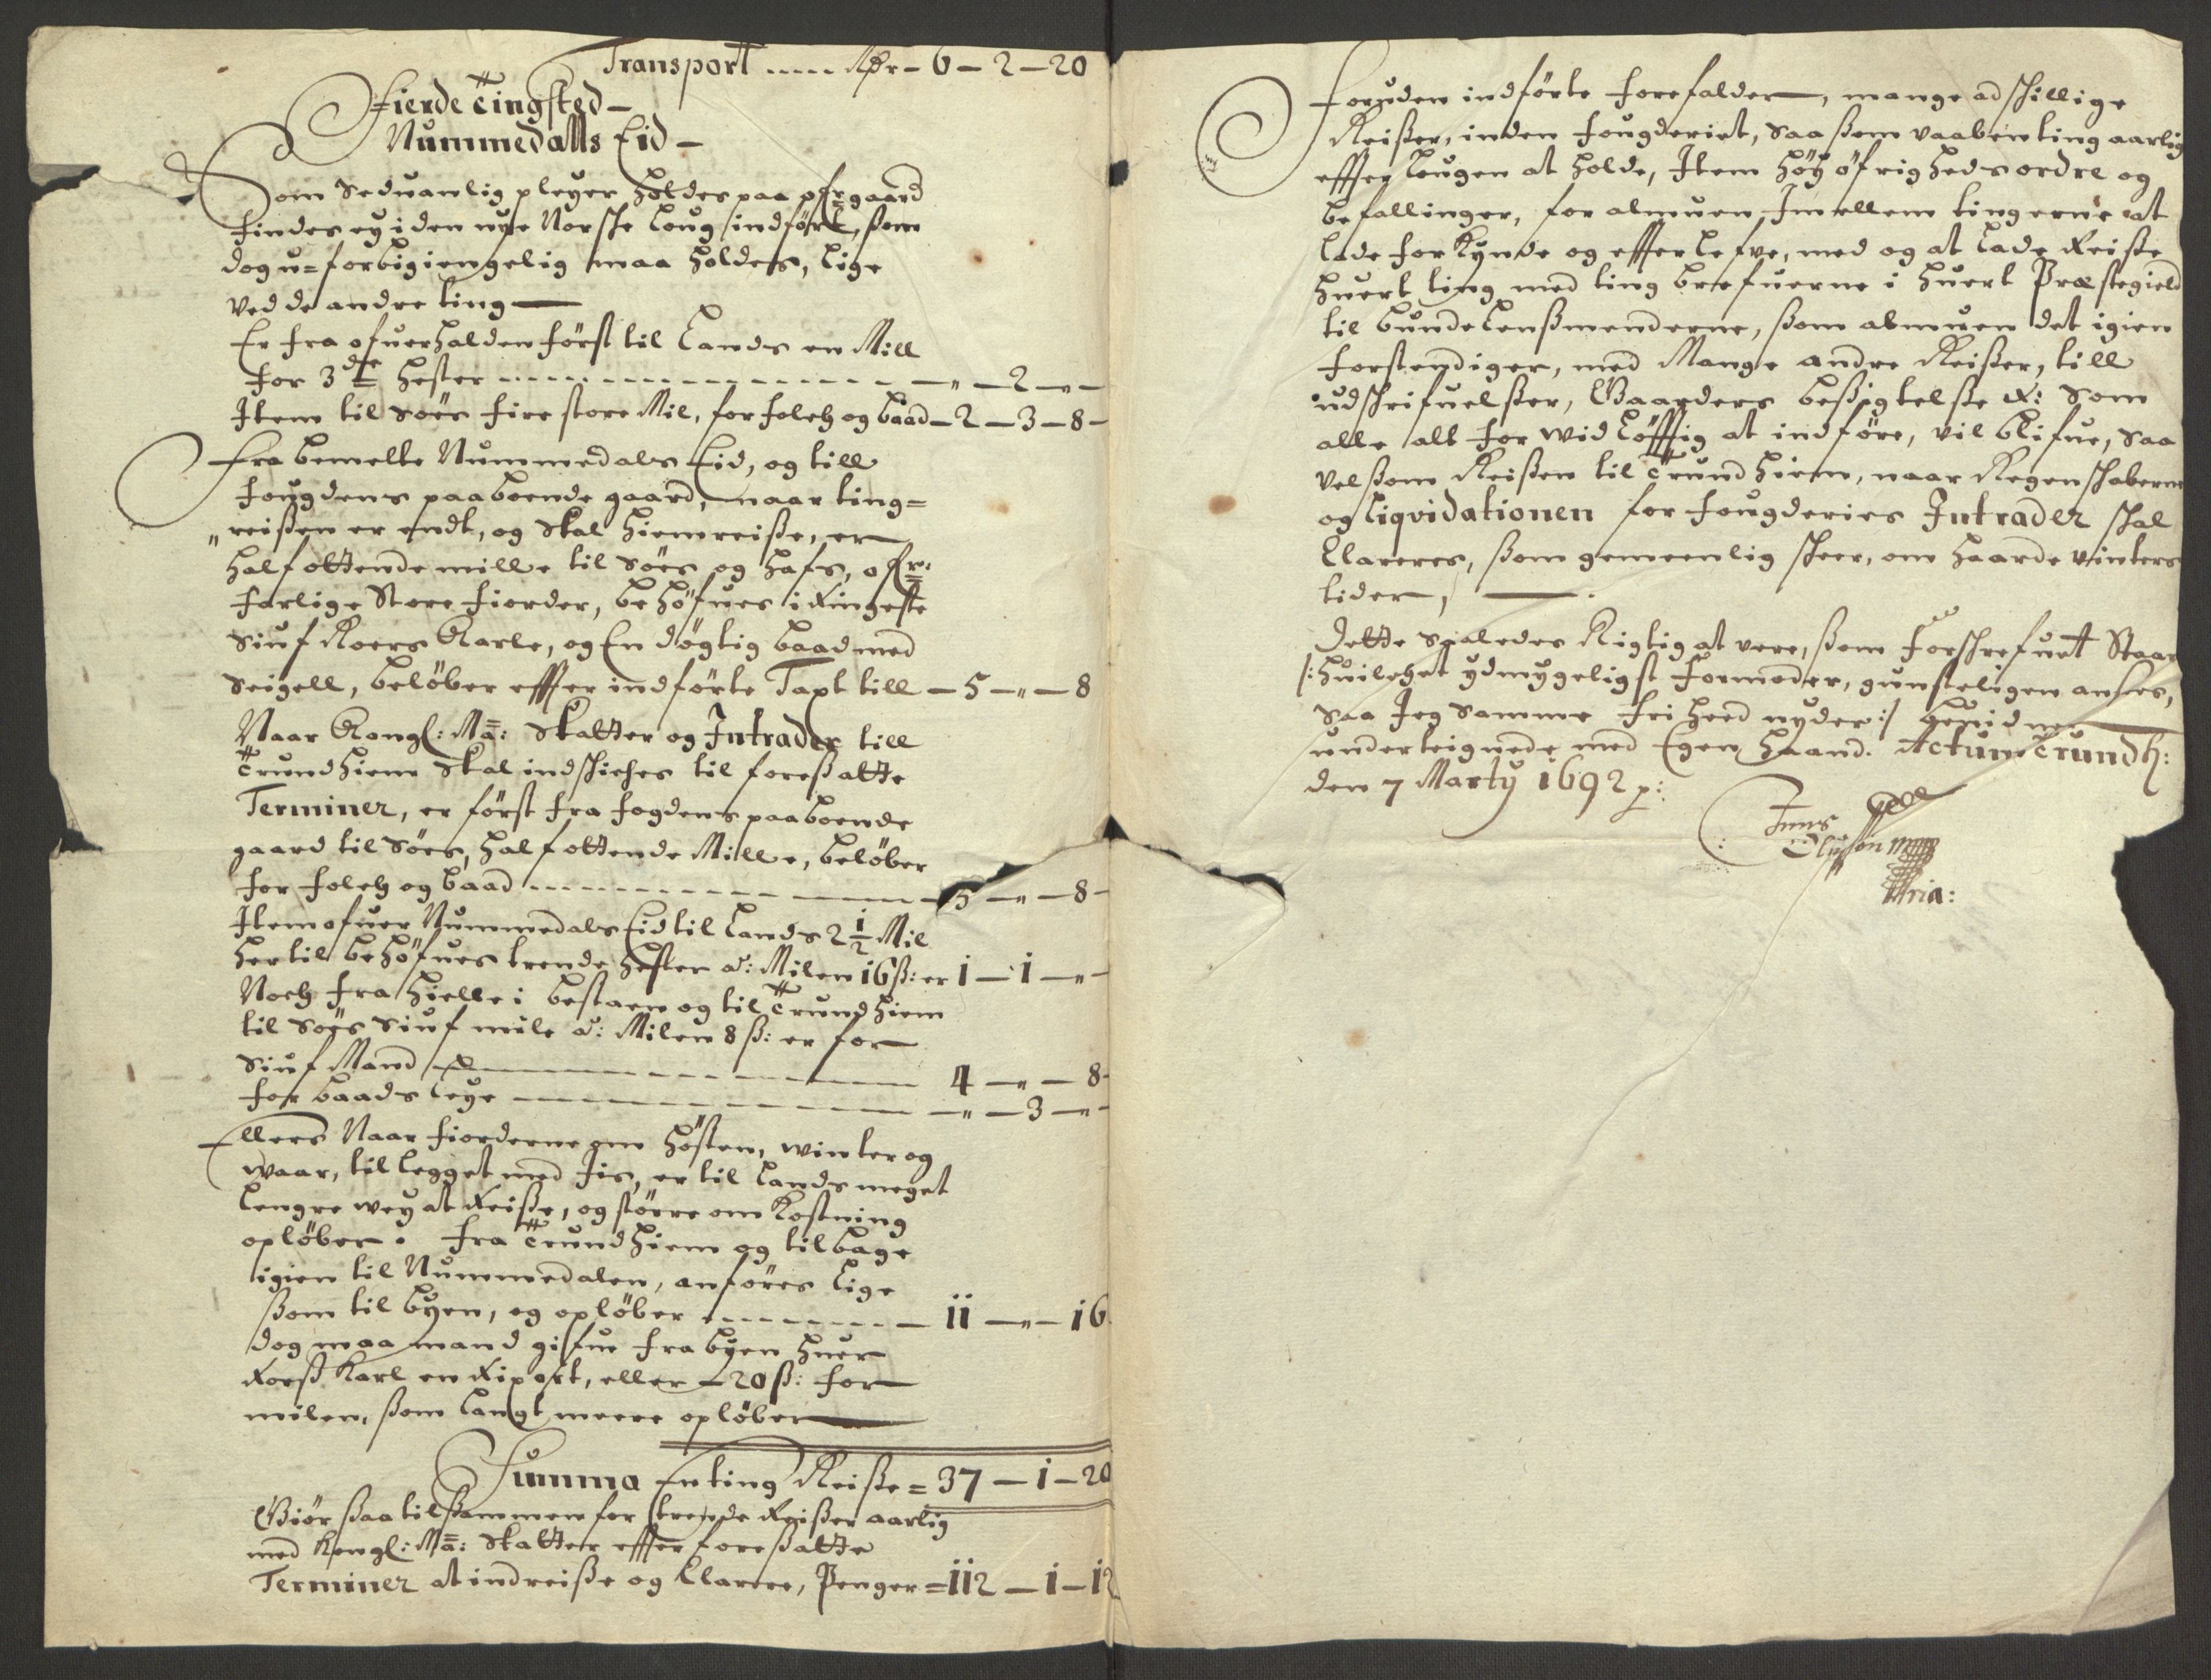 Transport ---- Rdr - 6 - 2 - 20
Fierde Tingsted -
Nummedalls Eid -
Som Seduanlig pleyer holdes paa gaard
findes ey i den nye Norske Loug indfört, ßom
dog u=forbigiengelig maa holdes, lige
ved de andre ting —
Er fra ofuerhalden först til Lands en Mill
for 3de hester ---- - " - 2 - " -
Item til Söes fire store Mil, for folch og baad - 2 - 3 - 8 -
Fra bemelte Nummedals Eid, og till
fougdens paaboende gaard, naar ting=
"reißen er endt, og Skal hiemreiße, er
half ottende mille til Söes og hafs, ofr:
farlige Store fiorder, behöfues i ringeste
Siuf Roers Karle, og En dögtig baad med
Seigell, belöber effter indförte Taxt till - 5 - " - 8
Naar Kongl: Ma: Skatter og Intrader till
Trundhiem Skal indschiches til foreßatte
Terminer, er först fra fogdens paaboende
gaard til Söes, half ottende Mille, belöber
for folch og baad ---- - 5 - " - 8 -
Item ofuer Nummedals Eid til Lands 2 1/2 Mil
hertil behöfues trende hester a: Milen 16 ß: er 1 - 1 - " -
Noch fra hielle i bestaen og til Trundhiem
til Söes Siuf mile a: Milen 8 ß: er for
Siuf Mand ---- 4 - " - 8 -
for baads leye ---- - " - 3 - " -
Ellers Naar fiorderne om hösten, winter og
waar, til legget med Jis, er til Lands meget
lengre wey at Reiße, og större omkostning
oplöber. Fra Trundhiem og tilbage
igien til Nummedalen, anföres lige
ßom til byen, og oplöber ---- - 11 - " - 16
dog maa mand gifue fra byen huer
Rorß Karl en Rixort, eller - 20 ß: for
milen, ßom langt meere oplöber
Summa En ting Reiße = 37 - 1 - 20
Giör ßaa tilßammen for trende Reißer aarlig
med Kongl: Ma: Skatter effter foreßatte
Terminer at indreiße og Clarere, Penger = 112 - 1 - 12
Foruden indförte forefalder, mange adschillige
Reißer, inden fougderiet, saa ßom vaabenting aarlig
effter lougen at holde, Item höy öfrigheds ordre og
befallinger, for almuen Imellem tingerne at
lade forkynde og effterlefve, med og at lade Reiße
huert ting med ting brefuerne i huert Præstegield
til bunde lenßmenderne, ßom almuen det igien
forstendiger, med Mange andre Reißer, till
udschrifuelßer, Gaarders beßigtelße &: Som
alle alt for widlöfftig at indföre, vil blifue, saa
velßom Reißen til Trundhiem, naar Regenschaberne
og liqvidationen for fougderies Intrader schal
Clareres, ßom gemeenlig scheer, om haarde vinters
tider, —
Dette saaledes Rigtig at vere, ßom forschrefuet Staar
/: huilchet ydmygeligst formoder, gunsteligen anßees,
saa Jeg samme frihed nyder :/ beuidner
underteignede med Egen haand. Actum Trundh:
den 7 Marty 1692 p:
mp
ria: